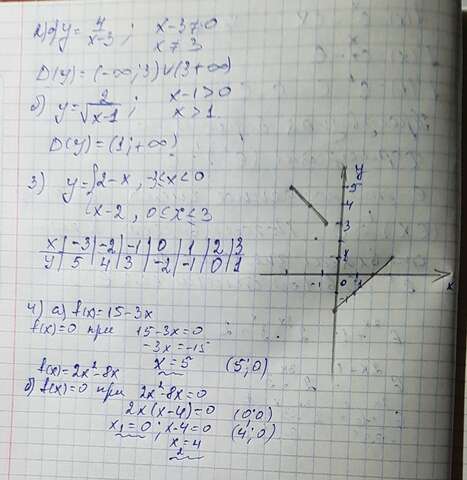 2) а) y = 4/(x-3); x-3≠0
x≠3
D(y)=(-∞;3)∪(3+∞)
б) y = 2/√(x-1); x-1>0
x>1.
D(y)=(1;+∞)
3) y={2-x, -3≤x<0
{x-2, 0≤x≤3
x | -3 | -2 | -1 | 0 | 1 | 2 | 3
y | 5 | 4 | 3 | -2 | -1 | 0 | 1
4) а) f(x)=15-3x
f(x)=0 при 15-3x=0
-3x=-15
x=5 (5;0)
f(x)=2x²-8x
б) f(x)=0 при 2x²-8x=0
2x(x-4)=0 (0;0)
x₁=0; x-4=0 (4;0)
x₂=4
y
5
4
3
1
-1 0 1 x
-1